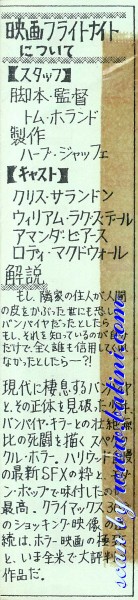 映画フライトナイト
について
【スタッフ】
脚本・監督
トム・ホランド
製作
ハーブ・ジャッフェ
【キャスト】
クリス・サランドン
ウィリアム・ラグスデール
アマンダ・ビアース
ロディ・マクドウォール
解説
もし、隣家の住人が人間
の皮をかぶった世にも恐
バンパイヤだったとしたら
もし、それを知っているのが
だけで、全く誰も信用して
なかったとしたらー?!
現代に棲息するバンパ
と、その正体を見破った
バンパイヤ・キラーとの壮絶
比の死闘を描くスペ
クル・ホラー。ハリウッド
の最新SFXの粋と、
ン・ホップで味付した
最高。クライマックス30
のショッキング・映像の
続は、ホラー映画の極
と、いま全米で大評判
作品だ。
scan by www.katina.com